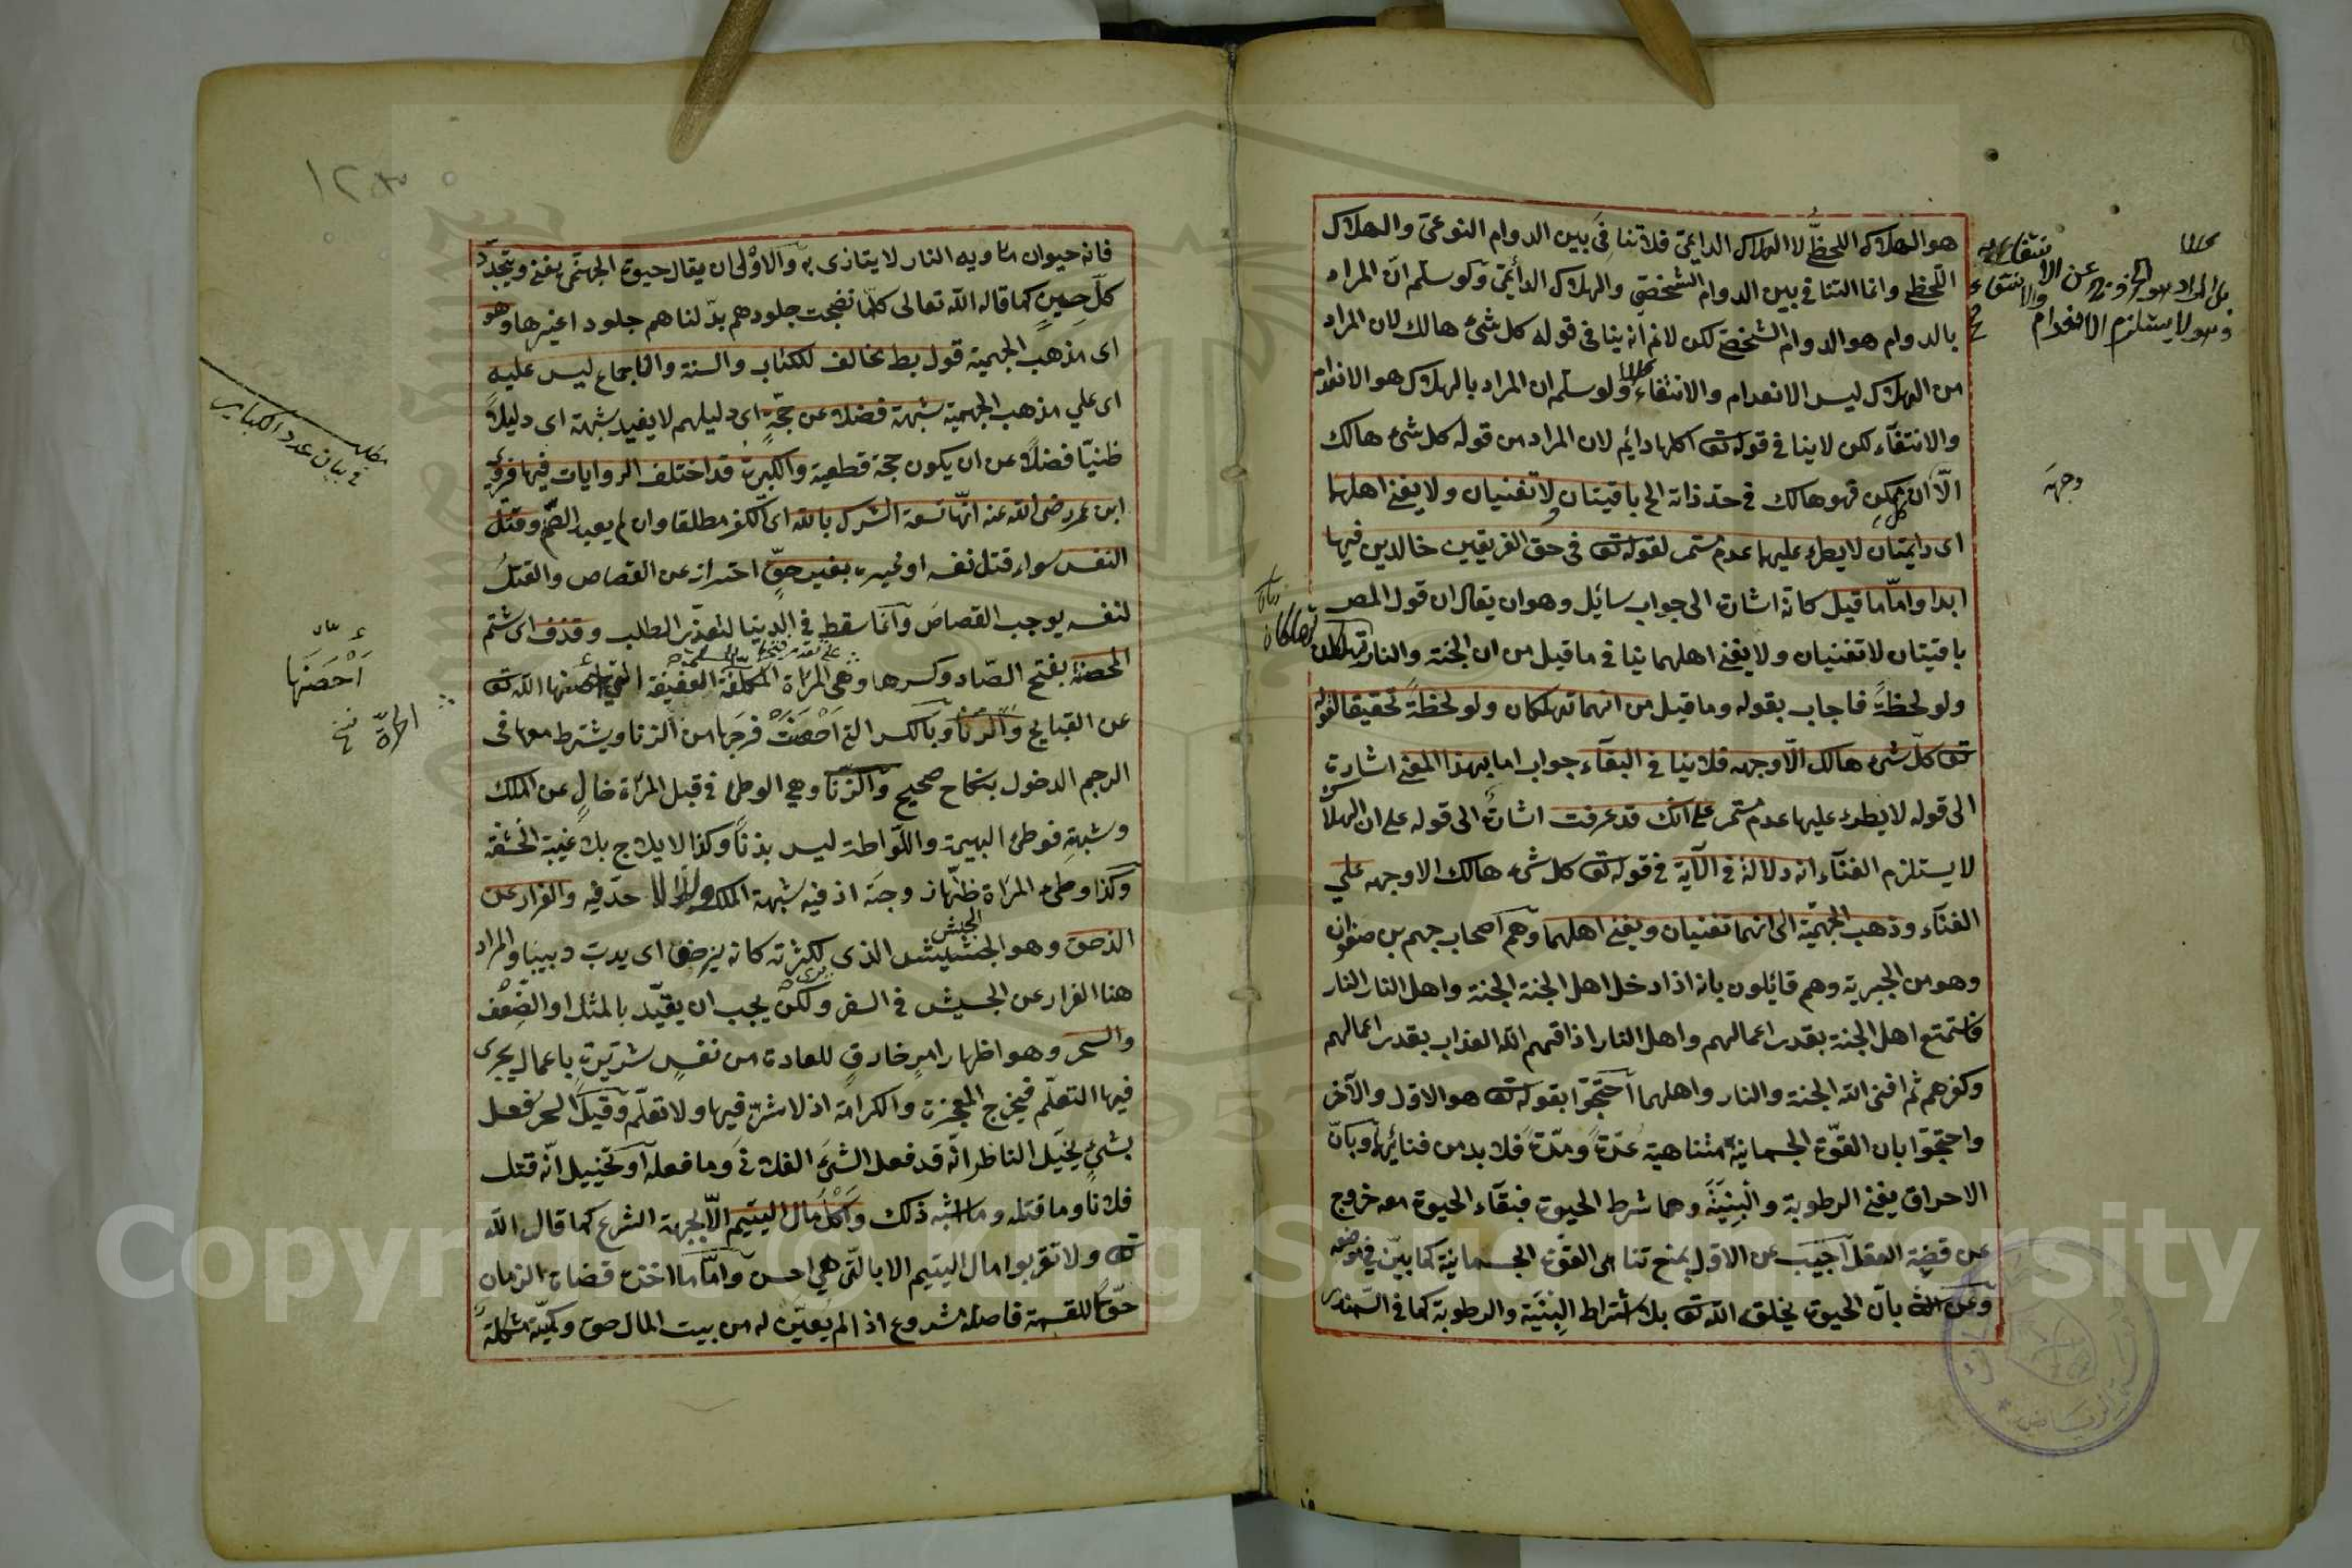 هو الهلاك اللحظى لا الهلاك الدايمى فلا تنافى بين الدوام النوعى والهلاك
اللحظى وانما التنافى بين الدوام الشخصى والهلاك الدائمى ولو سلم ان المراد
بالدوام هو الدوام الشخصى لكن لانم انه ينافى قوله كل شئ هالك لان المراد
من الهلاك ليس الانعدام والانتفاء ولو سلم ان المراد بالهلاك هو الانعدام
والانتفآء لكن لا ينافى قوله تع اكلها دايم لان المراد من قوله كل شئ هالك
الا ان كل ممكن فهو هالك فى حد ذاته الخ باقيتان لا تفنيان ولا يفنى اهلهما
اى دايمتان لا يطرء عليهما عدم مستمر لقوله تع فى حق الفريقين خالدين فيها
ابدا واما ما قيل كانه اشارة الى جواب سائل وهو ان يقال ان قول المص
باقيتان لا تفنيان ولا يفنى اهلهما ينافى ما قيل من ان الجنة والنار تهلكان
ولو لحظةً فاجاب بقوله وما قيل من انهما تهلكان ولو لحظةً تحقيقا لقوله
تع كل شئ هالك الا وجهه فلا ينافى البقآء جواب اما بهذا المعنى اشارة
الى قوله لا يطرء عليهما عدم مستمر على انك قد عرفت اشارة الى قوله على ان الهلاك
لا يستلزم الفنآء انه دلالة فى الآية فى قوله تع كل شئ هالك الا وجهه على
الفنآء وذهب الجهمية الى انهما تفنيان ويفنى اهلهما وهم اصحاب جهم بن صفوان
وهو من الجبرية وهم قائلون بانه اذا دخل اهل الجنة الجنة واهل النار النار
فاستمتع اهل الجنة بقدر اعمالهم واهل النار اذاقهم الله العذاب بقدر اعمالهم
وكفرهم ثم افنى الله الجنة والنار واهلهما احتجوا بقوله تع هو الاول والآخر
واحتجوا بان القوة الجسمانية متناهية عدةً ومدةً فلا بد من فنائها وبان
الاحراق يفنى الرطوبة والبنية وهما شرط الحيوة فبقآء الحيوة معه خروج
عن قضية العقل اجيب عن الاول بمنع تناهى القوة الجسمانية كما بين فى موضعه
وعن الثانى بان الحيوة يخلق الله تع بلا اشتراط البنية والرطوبة كما فى السمندر
بل المراد هو الخروج عن الانتفاع به
وهو لا يستلزم الانعدام والانتفاء
وجهه
تهلكان
١٢٣
فانه حيوان مأويه النار لا يتاذى به والاولى ان يقال حيوة الجهنمى يفنى ويتجدد
كل حين كما قاله الله تعالى كلما نضجت جلودهم بدلناهم جلودا غيرها وهو
اى مذهب الجهمية قول بط مخالف للكتاب والسنة والاجماع ليس عليه
اى على مذهب الجهمية شبهة فضلا عن حجة اى دليلهم لا يفيد شبهة اى دليلاً
ظنيّا فضلاً عن ان يكون حجة قطعية والكبيرة قد اختلف الروايات فيها فروى
ابن عمر رضى الله عنه انها تسعة الشرك بالله اى الكفر مطلقا وان لم يعبد الصنم وقتل
النفس سواء قتل نفسه او غيره بغير حقّ احتراز عن القصاص والقتل
لنفسه يوجب القصاص وانما سقط فى الدينا لتعذر الطلب وقذف اى شتم
المحصنة بفتح الصاد وكسرها وهى المرأة المكلفة العفيفة التى احصنها الله تع
عن القبايح والزنا وبالكسر التى احصنت فرجها من الزنا ويشترط معها فى
الرجم الدخول بنكاح صحيح والزنا وهى الوطئ فى قبل المرأة خالٍ عن الملك
وشبهةٍ فوطئ البهيمة واللواطة ليس بزنًا وكذا الايلاج بلا غيبة الحشفة
وكذا وطئ المرأة ظنها زوجته اذ فيه شبهة الملك ولذا لا حد فيه والفرار عن
الزحف وهو الجيش الذى لكثرته كانه يزحف اى يدب دبيبا والمراد
هنا الفرار عن الجيش فى السفر ولكن يجب ان يقيد بالمثل او الضعف
والسحر وهو اظهار امر خارق للعادة من نفس شريرة باعمال يجرى
فيها التعلم فيخرج المعجزة والكرامة اذ لا شر فيها ولا تعلم وقيل السحر فعل
بشئ يخيل الناظر انه قد فعل الشئ الفلانى وما فعله او تخييل انه قتل
فلانا وما قتله وما اشبه ذلك واكل مال اليتيم الا بجهة الشرع كما قال الله
تع ولا تقربوا مال اليتيم الا بالتى هى احسن واما ما اخذه قضاة الزمان
حقّا للقسمة فاصله مشروع اذا لم يعين له من بيت المال حق وكميته مشكلة
مطلب
فى بيان عدد الكبائر
احصنها
الحرة
Copyright © King Saud University